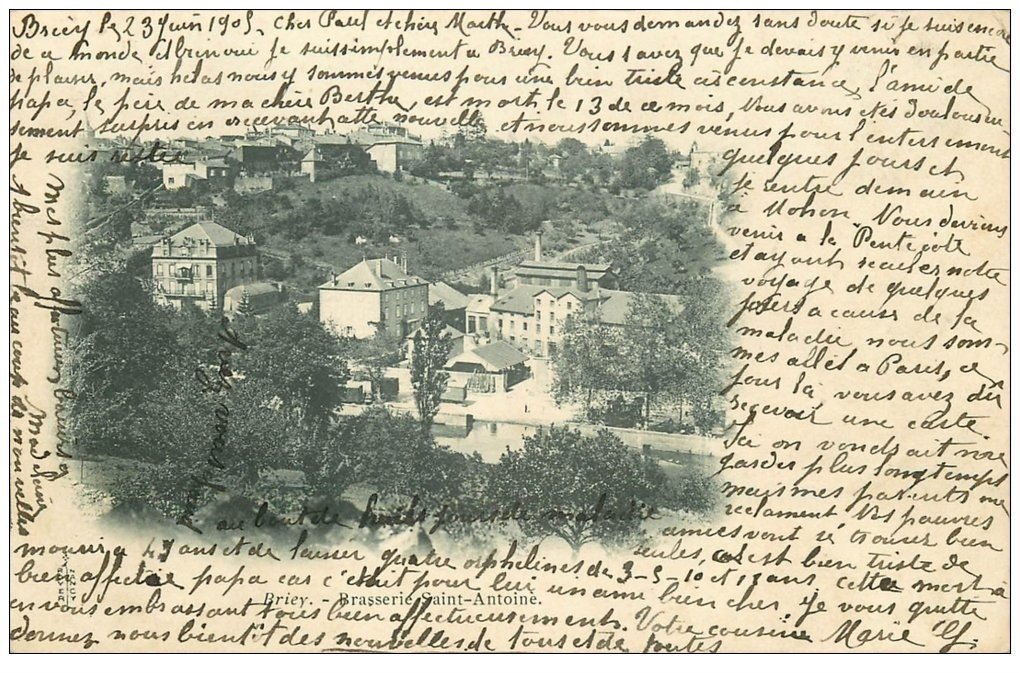 Briey le 23 Juin 1905. Cher Paul et chère Marthe. Vous vous demandez sans doute si je suis encore
de ce monde et bien oui je suis simplement à Briey. Vous savez que je devais y venir en partie
de plaisir, mais hélas nous y sommes venus pour une bien triste circonstance, l'ami de
papa, le père de ma chère Berthe, est mort le 13 de ce mois, Vous avons été douloureu-
sement surpris en recevant cette nouvelle et nous sommes venus pour l'enterrement
Je suis restée
quelques jours et
je rentre demain
à Mohon. Vous deviez
venir à la Pentecôte
et ayant reculer notre
voyage de quelques
jours à cause de la
maladie, nous som-
mes allés à Paris, ce
jour là, vous avez dû
recevoir une carte.
Ici on voudrait me
garder plus longtemps
mais mes parents me
réclament Mes pauvres
amies vont se trouver bien
seules, car est bien triste de
au bout de huit jours de maladie
mourir à 47 ans et de laisser quatre orphelines de 3-5-10 et 17 ans, cette mort a
bien affecté papa car c'était pour lui un ami bien cher. Je vous quitte
Briey. - Brasserie Saint-Antoine.
en vous embrassant tous bien affectueusement. Votre cousine Marie G.
donnez nous bientôt des nouvelles de tous et de toutes
Mes plus affectueux baisers
à bientôt le
de nouvelles